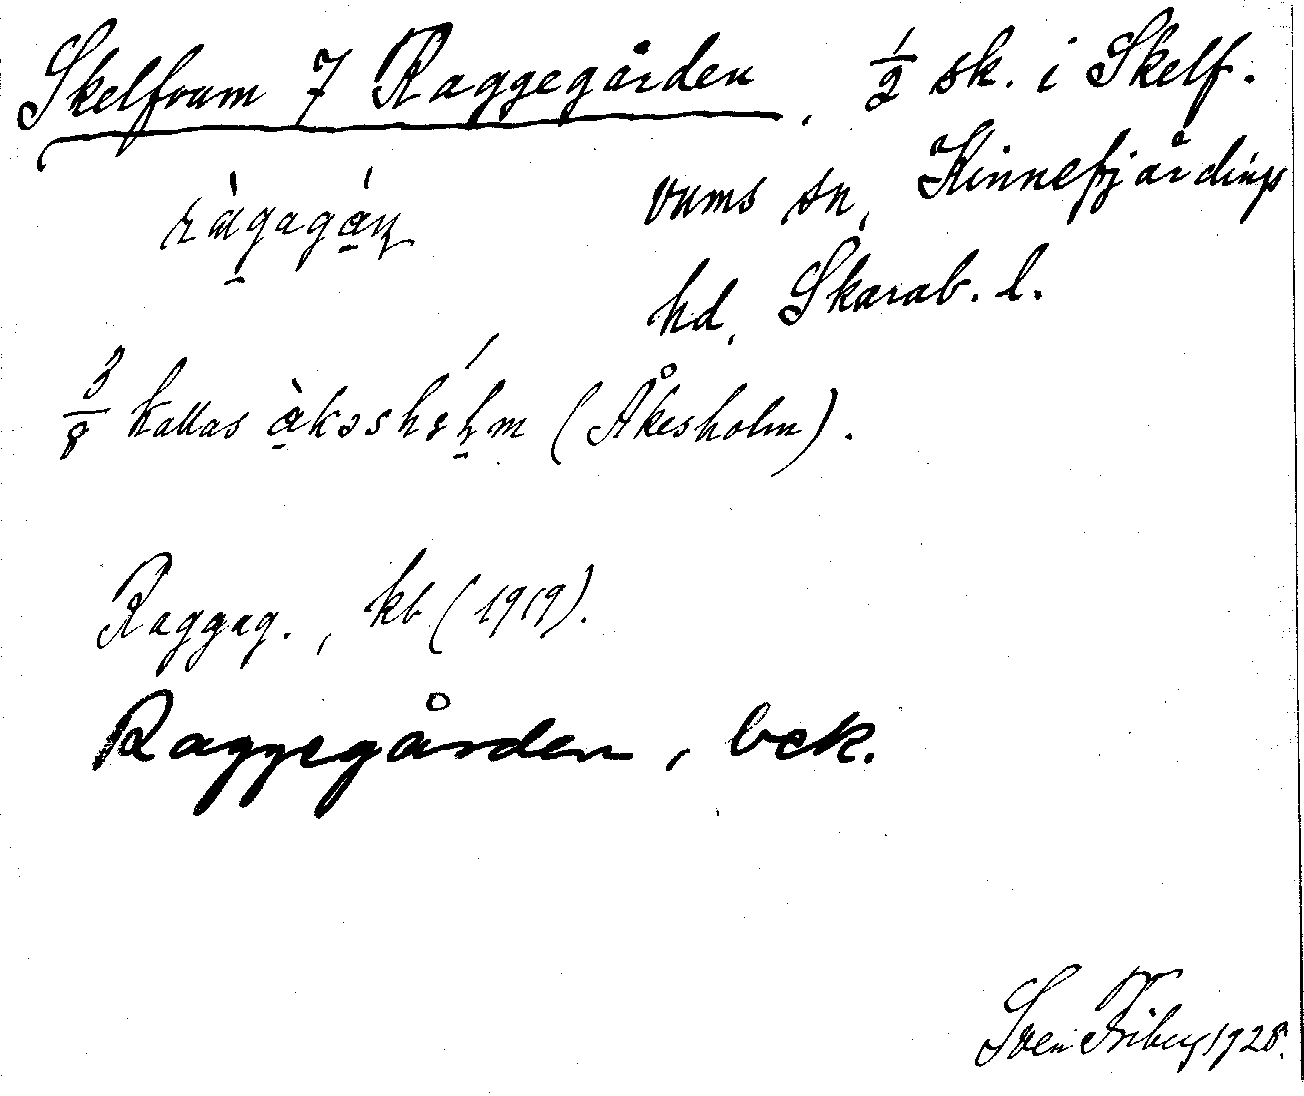 Skelfvum 7 Raggegården, 1/2 sk. i Skelf-
vums sn, Kinnefjärdings
hd, Skarab. l.
ràgagáṇ
3/8 kallas àkəshɞ́ḷm (Åkesholm).
Raggeg., kb (1919).
Raggegården, bek.
Sven Friberg 1928.